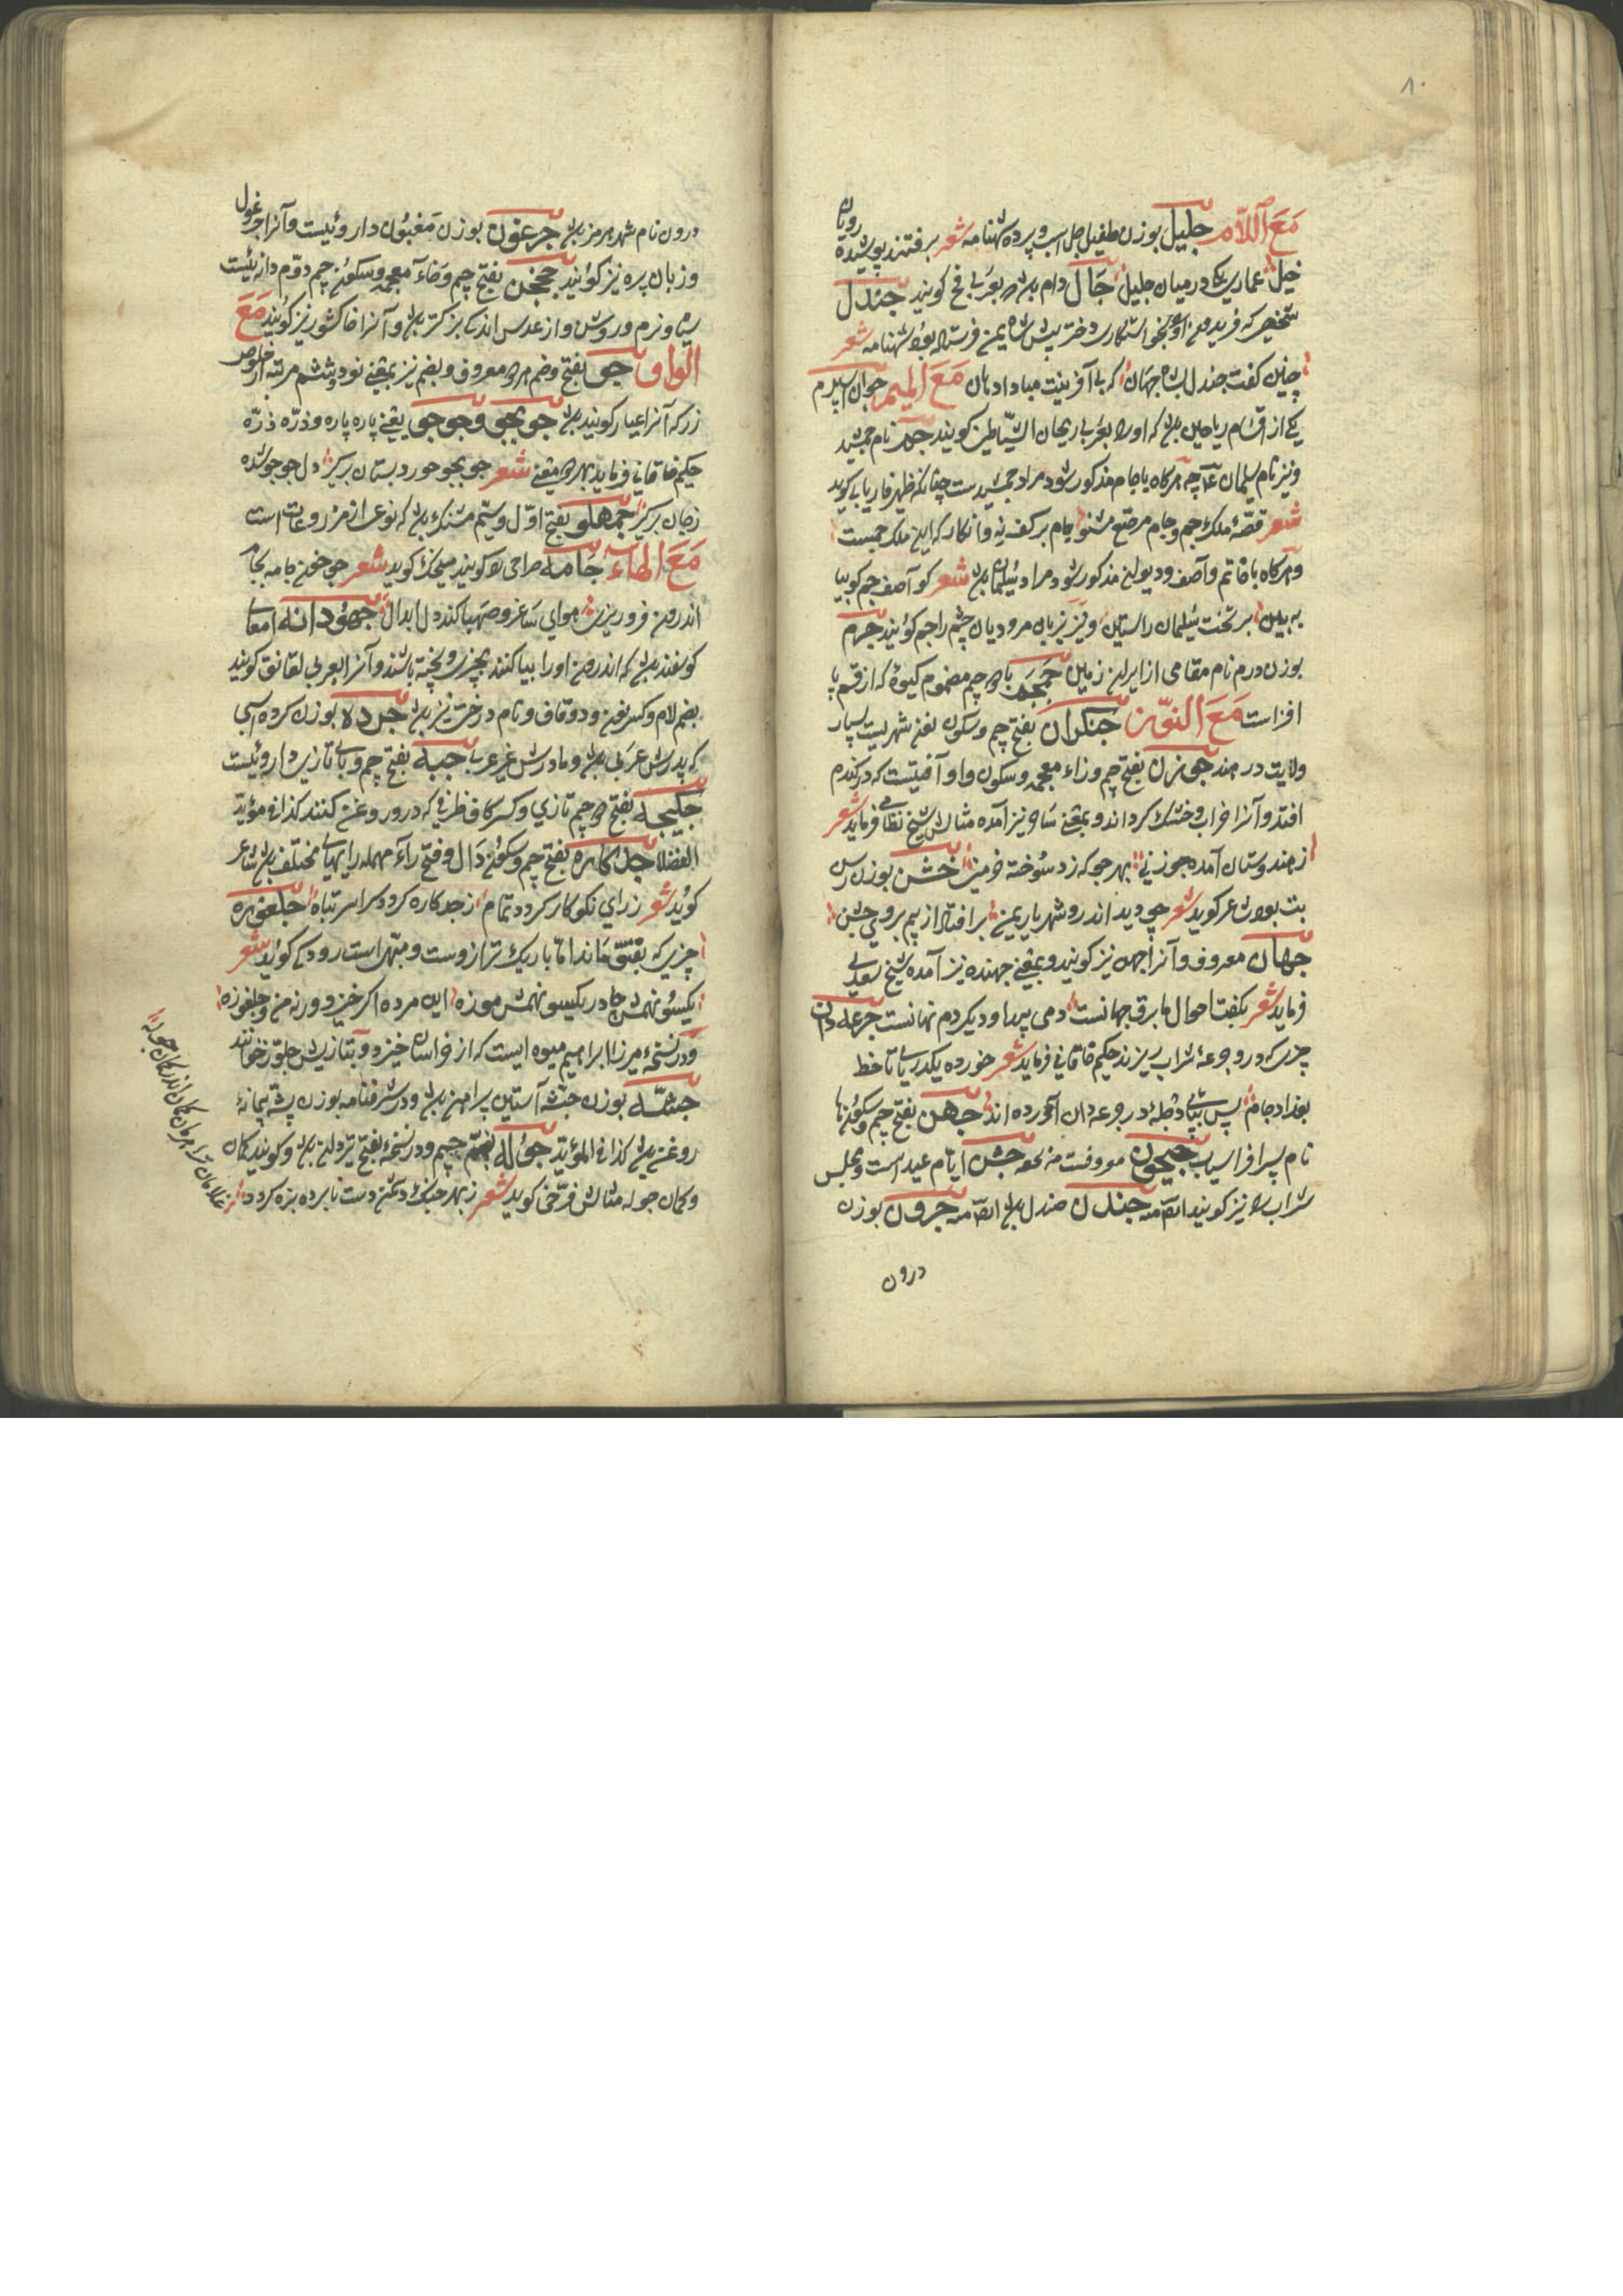 ٨٠
مَعَ اللّام جليل بوزن طفیل جل اسب و پرده شهنامه شعر برفتند پوشیده رویان
خیل عماری یکی در میان جلیل جال دام باشد و بعربی فخ کویند جندل
شخصی که فریدون او بخواستکاری دختر پیش شاه یمن فرستاده بود شهنامه شعر
چنین کفت جندل بشاه جهان که بی آفرینت مبادا دهان مَعَ المیم جوان اسپرم
یکی از اقسام ریاحین باشد که اورا بعربی ریحان الشیاطین کویند جم نام جمشید
ونیز نام سلیمان عم چه هرکاه باجام مذکور شود مراد جمشیدست چنانکه ظهیر فاریابی کوید
شعر قصّۀ ملک جم وجام مرصّع مشنو جام برکف نه وانکار که این ملک جمست
وهرکاه باخاتم وآصف ودیو مذکور شود مراد سلیمان باشد شعر کو آصف جم کو بیا
به بین بر تخت سلیمان راستین ونیز بزبان مرودیان چشم را جم کویند جرم
بوزن درم نام مقامی از ایران زمین جمجم با دو جیم مضموم کیوۀ که از قسم پا
افزاست مَعَ النّون جنکران بفتح جیم وسکون نون شهریست بسیار
ولایت در هند جوزن بفتح جیم وزاء معجمه وسکون واو آفتیست که در کندم
افتد وآنرا خراب وخشک کرداند وبمعنی ساحر نیز آمده مثالش شیخ نظامی فرماید شعر
زهندوستان آمده جوزنی بهر جو که زد سوخته خرمنی جشن بوزن رسن
تب بود شاعر کوید شعر چو دید اندرو شهریار یمن برافتاد از بیم بروی جشن
جهان معروف وآنرا جهن نیز کویند وبمعنی جهنده نیز آمده شیخ سعدی
فرماید شعر بکفت احوال ما برق جهانست دمی پیدا ودیکر دم نهانست جرعه دان
چیزی که درو جرعۀ شراب ریزند حکیم خاقانی فرماید شعر خورده یکدریای تا خط
بغداد جام پس بیاد دجله در جرعه دان آورده اند جهن بفتح جیم وسکون ها
نام پسر افراسیاب جیحون معروفست جشن ایام عید است ومجلس
شراب را نیز کویند ایضا منه جندن صندل باشد ایضا منه جرون بوزن
درون
درون نام شهر هرمز باشد جرغون بوزن مغبون داروئیست وآنرا جرغول
وزبان بره نیز کویند جخجن بفتح جیم وخاء معجمه وسکون جیم دوّم دانه ئیست
سیاه ونرم وروشن واز عدس اندک بزرکتر باشد وآنرا خاکشور نیز کویند مَعَ
الواو جو بفتح وضم معروف وبضم نیز بمعنی نود وششم مرتبه از خلوص
زر که آنرا عیار کویند باشد جو بجو وجو جو یعنی پاره پاره وذرّه ذرّه
حکیم خاقانی فرماید بهر دو معنی شعر جو بجو جور دستان برکیر دل جو جو شده
زجان برکیر جمهلو بفتح اوّل وسیّم مشنک باشد که نوعی از مزروعات است
مَعَ الهاء جامه صراحی را کویند منجک کوید شعر چو خون جامه بجام
اندرون فرو ریزی هوای ساغر وصهبا کند دل ابدال جهودانه امعای
کوسفند باشد که اندرون اورا بیا کنند بچیزی وپخته باشند وآنرا بعربی لقانق کویند
بضم لام وکسر نون ودو قاف ونام درخت نیز باشد جرده بوزن کرده اسبی
که پدرش عربی باشد ومادرش غیر عربی جبه بفتح جیم وبای تازی داروئیست
جکیجه بفتح دو جیم تازی وکسر کاف ظرفی که درو روغن کنند کذا فی مؤید
الفضلا جدکاره بفتح جیم وسکون دال وفتح راء مهمله رایهای مختلف باشد شاعر
کوید شعر زرای نکو کار کردد تمام زجدکاره کردد سراسر تباه جلغوزه
چیزی که بفستق ماند اما باریک تر ازوست ومشهور است رودکی کوید شعر
یکسو نهمش چادر یکسو نهمش موزه این مرده اکر خیزد ورنه من وجلغوزه
ودر نسخۀ میرزا ابراهیم میوه ایست که از خراسان خیزد وبتازیش جلّوز خوانند
جنشه بوزن جثّه آستین پیراهن باشد ودر شرفنامه بوزن پشه پیمانۀ
روغن باشد کذا فی المؤید جوله بضم جیم ودر نسخۀ بفتح تیردان باشد وکویند کمان
وکمان جوله مثالش فرّخی کوید شعر زبهر جنک دشمن دست نابرده بزه کردد